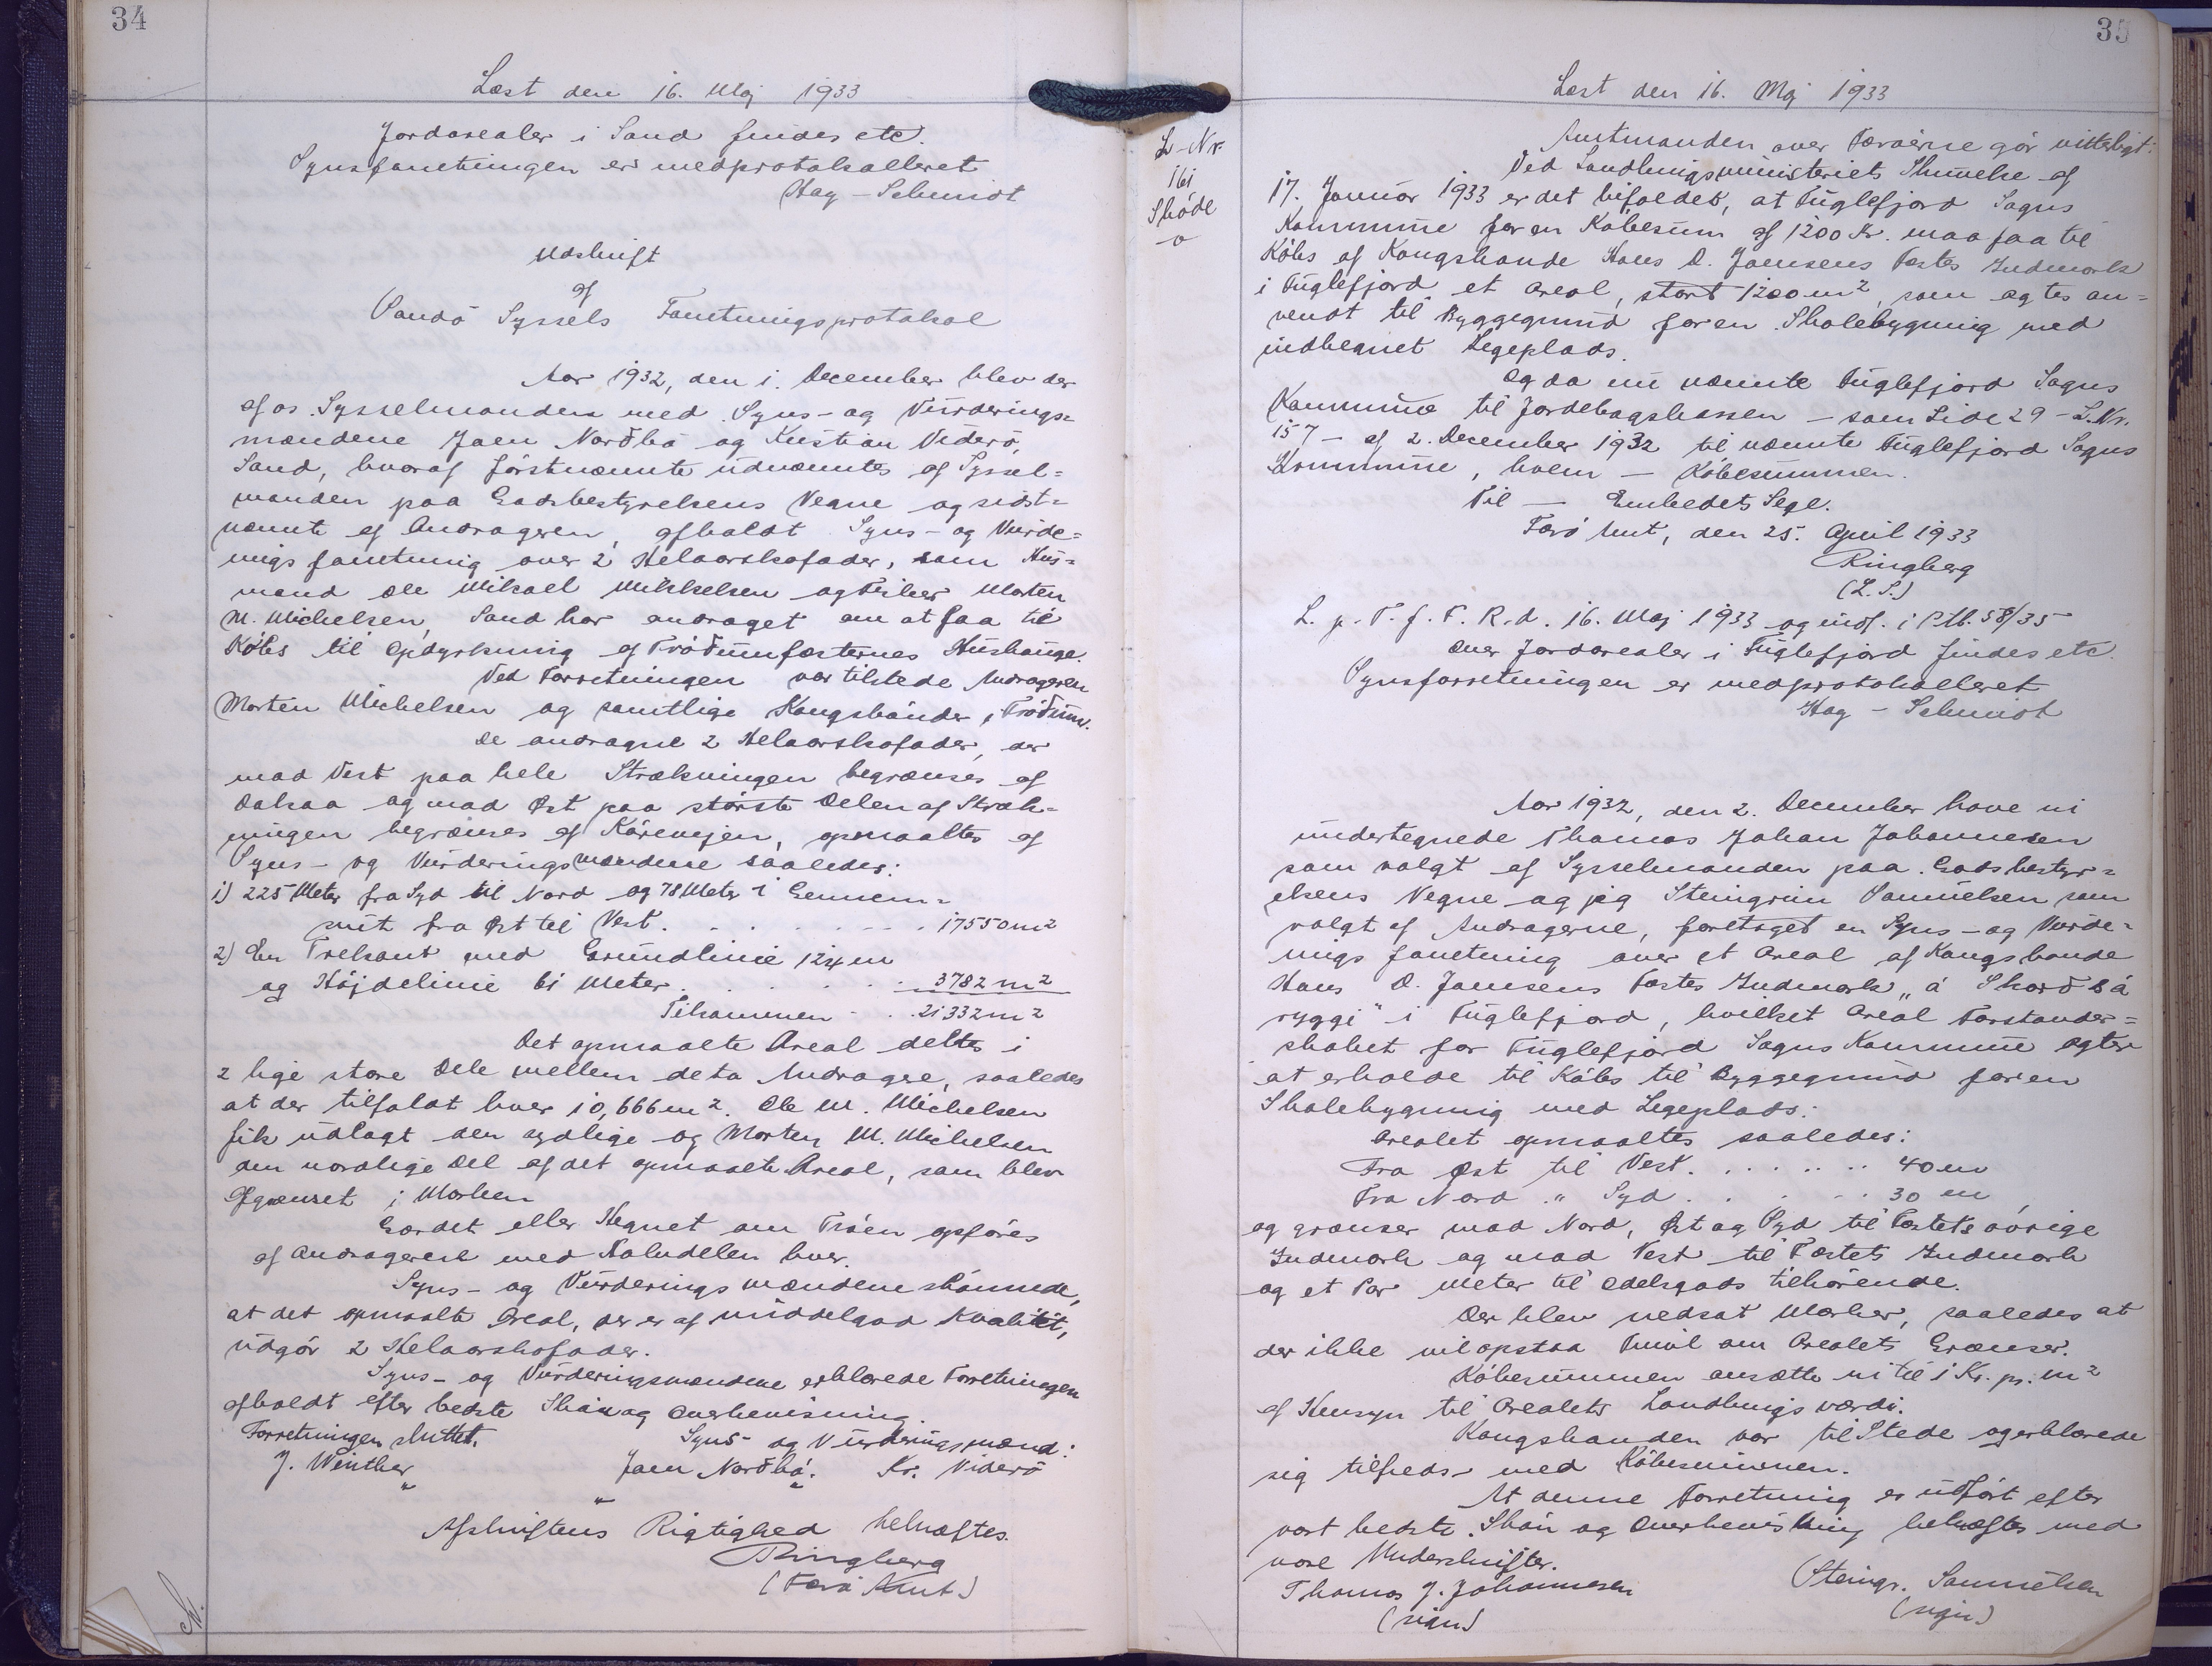 34
Læst den 16. Maj 1933
Jordarealer i Sand findes etc.
Synsforretningen er medprotokolleret
Hag-Schmidt
Udskrift
af
Sandö Syssels Forretningsprotokol
Aar 1932, den 1. December blev der
af os Sysselmanden med Syns- og Vurderings=
mændene Joen Norðbá og Kristian Viderö,
Sand, hvoraf förstnævnte udnævntes af Syssel=
manden paa Godsbestyrelsens Vegne og sidst=
nævnte af Andrageren, afholdt Syns- og Vurde=
rings forretning over 2 Helaarskofoder, som Hus=
mand Ole Mikael Mikkelsen og Fisker Morten
M. Michelsen, Sand har andraget om at faa til
Köbs til Opdyrkning af Tröðumfæsternes Hushauge.
Ved Forretningen var tilstede Andrageren
Morten Michelsen og samtlige Kongsbönder i Tröðum.
De andragne 2 Helaarskofoder, der
mod Vest paa hele Strækningen begrænses af
Dalsaa og mod Øst paa störste Delen af Stræk=
ningen begrænses af Körevejen, opmaaltes af
Syns- og Vurderingsmændene saaledes:
1) 225 Meter fra Syd til Nord og 78 Meter i Gennem=
snit fra Øst til Vest. . . . . . . . 17550 m²
2) En Trekant med Grundlinie 124 m
og Höjdelinie 61 Meter . . . . . . 3782 m²
Tilsammen . . 21332 m²
Det opmaalte Areal deltes i
2 lige store Dele mellem de to Andragere, saaledes
at der tilfaldt hver 10,666 m². Ole M. Michelsen
fik udlagt den sydlige og Morten M. Michelsen
den nordlige Del af det opmaalte Areal, som blev
afgrænset i Marken
Gærdet eller Hegnet om Tröen opföres
af Andragerne med Halvdelen hver.
Syns- og Vurderings mændene skönnede,
at det opmaalte Areal, der er af middelgod Kvalitet,
udgör 2 Helaarskofoder.
Syns- og Vurderingsmændene erklærede Forretningen
afholdt efter bedste Skön og Overbevisning.
Forretningen sluttet.
Syns- og Vurderingsmænd:
J. Winther Joen Norðbá. Kr. Viderö
Afskriftens Rigtighed bekræftes.
Ringberg
(Færö Amt)
35
Læst den 16. Maj 1933
L-Nr.
161
Sköde
-o
Amtmanden over Færöerne gör vitterligt:
Ved Landbrugsministeriets Skrivelse af
17. Januar 1933 er det bifaldet, at Fuglefjord Sogns
Kommune for en Köbesum af 1200 Kr. maa faa til
Köbs af Kongsbonde Hans D. Joensens Fæstes Indmark
i Fuglefjord et Areal, stort 1200 m², som agtes an=
vendt til Byggegrund for en Skolebygning med
indhegnet Legeplads.
Og da nu nævnte Fuglefjord Sogns
Kommune til Jordebogskassen - som Side 29 - L.Nr.
157 - af 2. December 1932 til nævnte Fuglefjord Sogns
Kommune, hvem - Köbesummen.
Til - Embedets Segl.
Færö Amt, den 25. April 1933
Ringberg
(L.S.)
L. p. T. f. F. R. d. 16. Maj 1933 og indf. i PM. 58/35
Over Jordarealer i Fuglefjord findes etc.
Synsforretningen er medprotokolleret
Hag - Schmidt
Aar 1932, den 2. December have vi
undertegnede Thomas Johan Johannesen
som valgt af Sysselmanden paa Godsbestyr=
elsens Vegne og jeg Steingrim Samuelsen som
valgt af Andragerne, foretaget en Syns- og Vurde=
rings forretning over et Areal af Kongsbonde
Hans D. Joensens Fæstes Indmark „á Skarðsá
ryggi“ i Fuglefjord, hvilket Areal Forstander=
skabet for Fuglefjord Sogns Kommune agter
at erholde til Köbs til Byggegrund for en
Skolebygning med Legeplads.
Arealet opmaaltes saaledes:
Fra Øst til Vest. . . . . . . 40 m
Fra Nord „ Syd . . . . . 30 m
og grænser mod Nord, Øst og Syd til Fæstets övrige
Indmark og mod Vest til Fæstets Indmark
og et Par Meter til Odelsgods tilhörende.
Der blev nedsat Mærker, saaledes at
der ikke vil opstaa Tvivl om Arealets Grænser.
Köbesummen ansætte vi til 1 Kr. pr. m²
af Hensyn til Arealets Landbrugs værdi.
Kongsbonden var til Stede og erklærede
sig tilfreds med Köbesummen.
At denne Forretning er udfört efter
vort bedste Skön og Overbevisning bekræftes med
vore Underskrifter.
Thomas J. Johannesen Steingr. Samuelsen
(sign) (sign.)